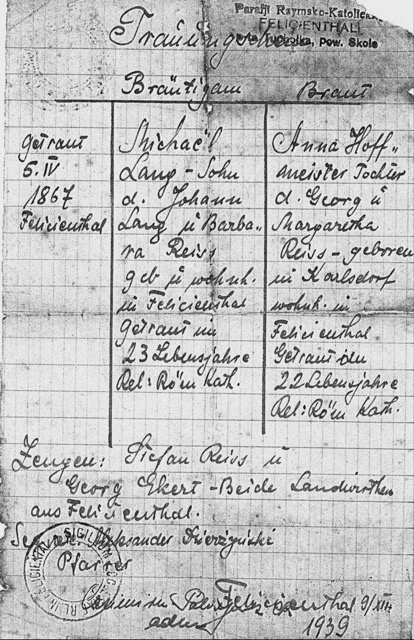 Parafji Raymsko-Katolick
FELICIENTHAL
Tucholka, pow. Skole
Trauungs
Bräutigam
Braut
Getraut
5. IV
1867
Felicienthal
Michael
Lang - Sohn
d. Johann
Lang u Barba„
ra Reiss
geb u wohnh.
in Felicienthal
Getraut im
23 Lebensjahre
Rel: Röm Kath.
Anna Hoff„
meister Tochter
d. Georg u
Margaretha
Reiss - geboren
in Karlsdorf
wohnh. in
Felicienthal
Getraut im
22 Lebensjahre
Rel: Röm Kath.
Zeugen: Stefan Reiss u
Georg Ekert - Beide Landwirthen
aus Felicienthal.
Pfarrer
SIGILLUM
Felizienthal 9/XII
1939